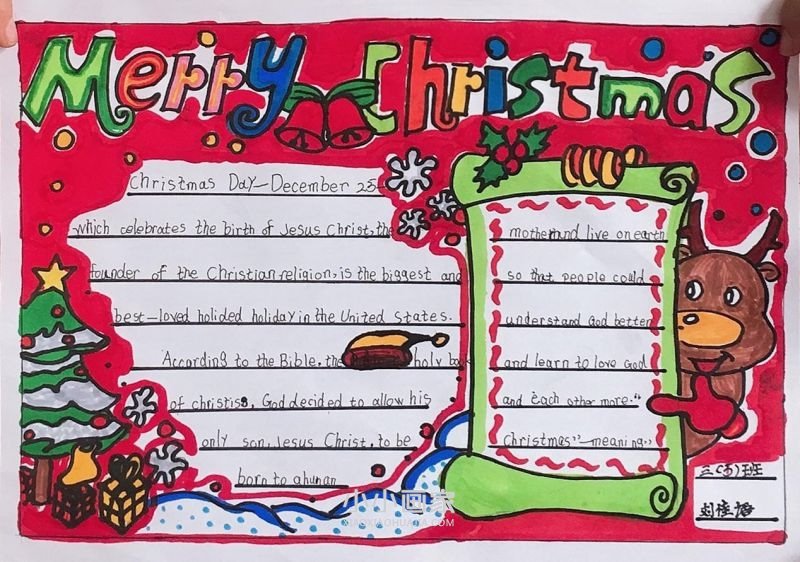 Merry Christmas
Christmas Day—December 25—
which celebrates the birth of Jesus Christ, the
founder of the Christian religion, is the biggest and
best-loved holided holiday in the United States.
According to the Bible, the holy book
of christiss, God decided to allow his
only son, Jesus Christ, to be
born to a human
mother and live on earth
so that people could
understand God better
and learn to love God
and each other more."
Christmas"—meaning"
三(5)班
小小画家
XIAOXIAOHUAJIA.COM